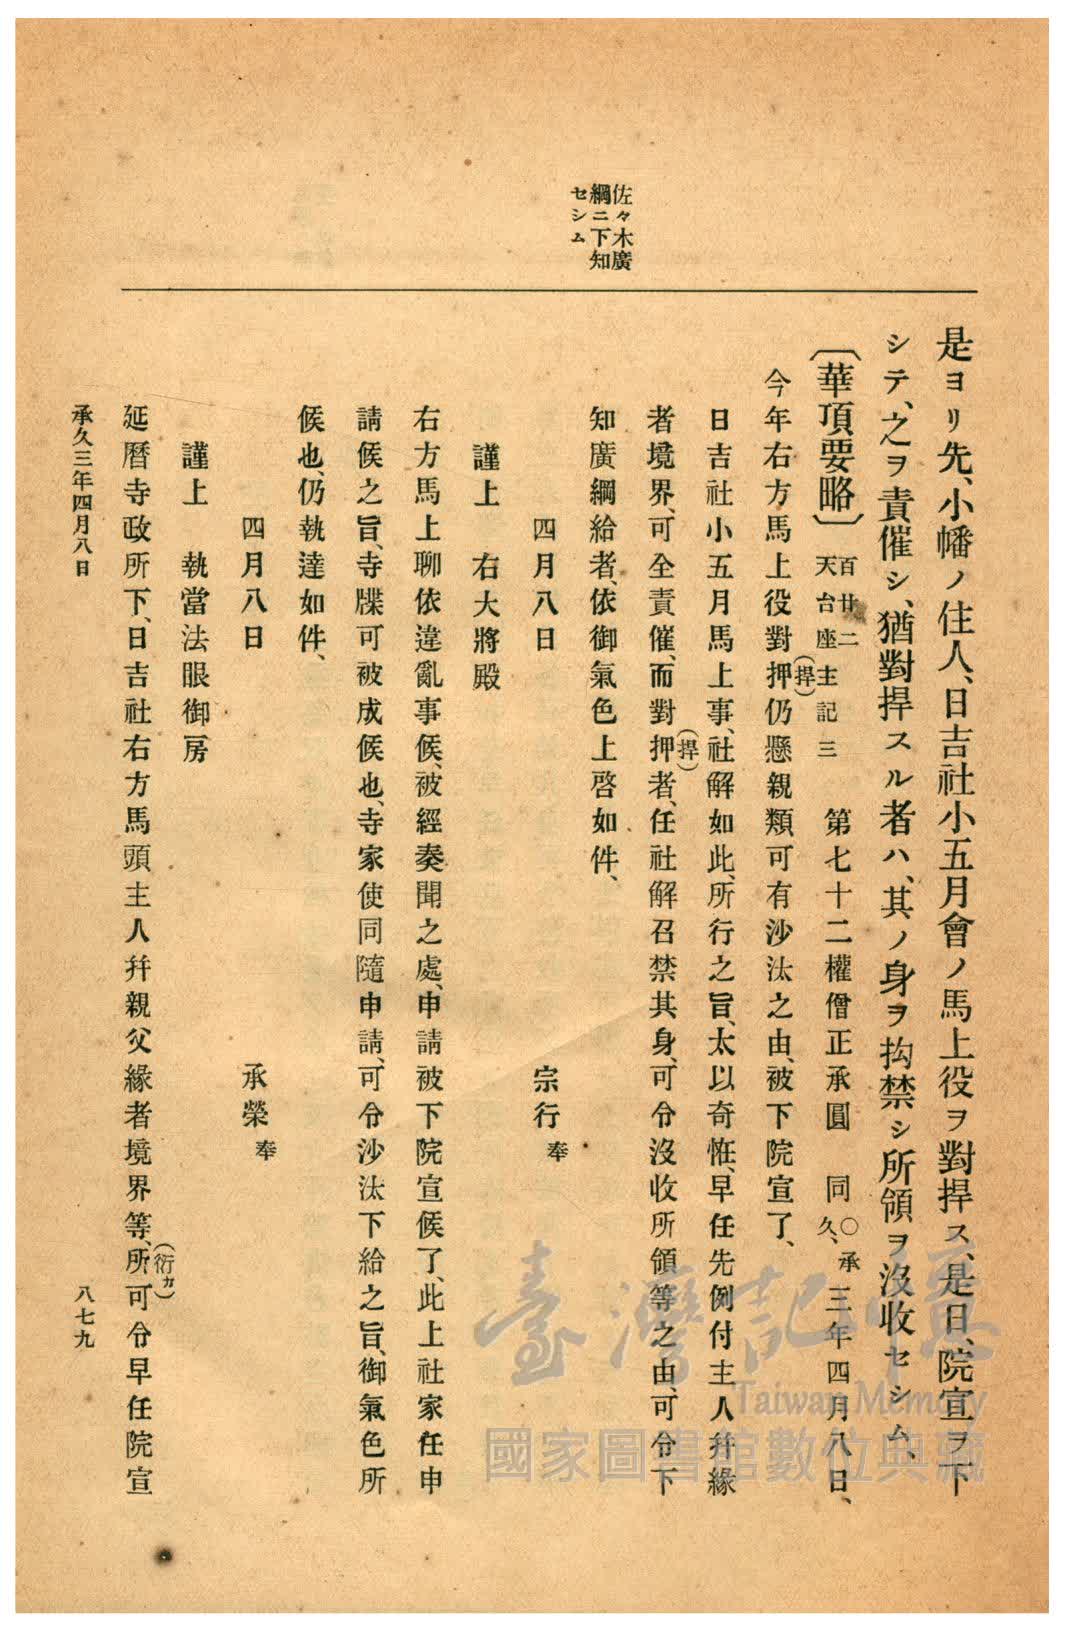 佐々木廣
綱ニ下知
セシム
是ヨリ先、小幡ノ住人、日吉社小五月會ノ馬上役ヲ對捍ス、是日、院宣ヲ下
シテ、之ヲ責催シ、猶對捍スル者ハ、其ノ身ヲ拘禁シ所領ヲ沒收セシム、
〔華項要略〕百廿二天台座主記三 第七十二權僧正承圓 同〇承久、三年四月八日、
今年右方馬上役對押(捍)仍懸親類可有沙汰之由、被下院宣了、
日吉社小五月馬上事、社解如此、所行之旨、太以奇恠、早任先例付主人幷緣
者境界、可全責催、而對押(捍)者、任社解召禁其身、可令沒收所領等之由、可令下
知廣綱給者、依御氣色上啓如件、
四月八日 宗行奉
謹上 右大將殿
右方馬上聊依違亂事候、被經奏聞之處、申請被下院宣候了、此上社家任申
請候之旨、寺牒可被成候也、寺家使同隨申請、可令沙汰下給之旨、御氣色所
候也、仍執達如件、
四月八日 承榮奉
謹上 執當法眼御房
延曆寺政所下、日吉社右方馬頭主人幷親父緣者境界等、所(衍カ)可令早任院宣
承久三年四月八日 八七九
臺灣記憶
Taiwan Memory
國家圖書館數位典藏